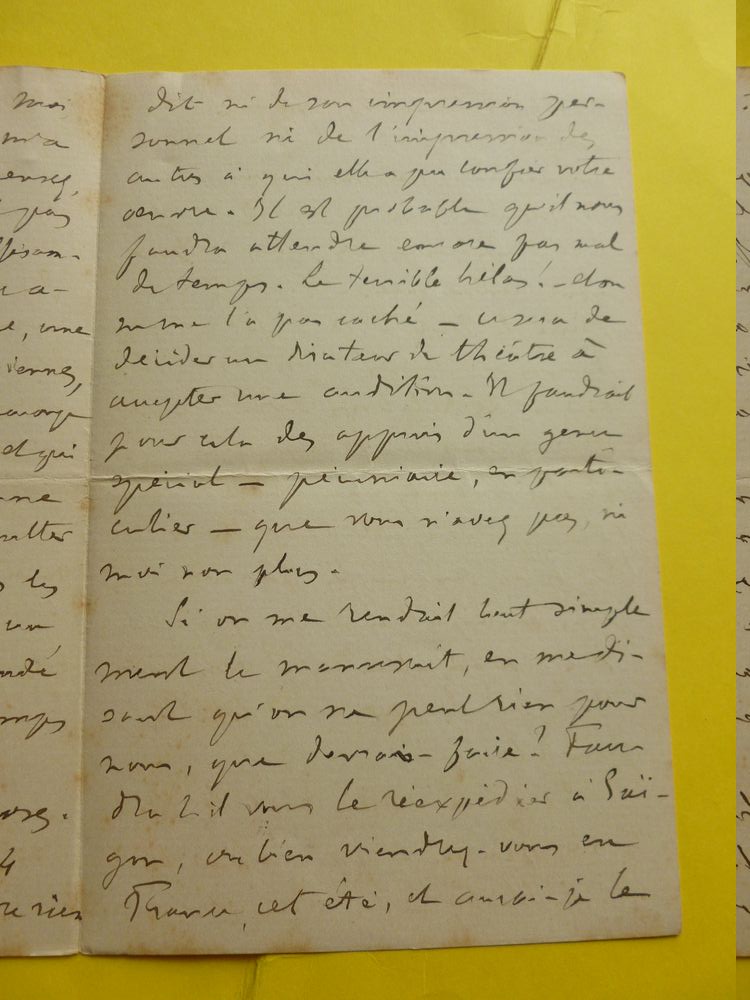 moi
m'a
pas
a-
e, une
et qui
une
les
un
mps
4
rien
dit ni de son impression per-
sonnel ni de l'impression des
autres à qui elle a pu confier votre
œuvre. Il est probable qu'il nous
faudra attendre encore pas mal
de temps. Le terrible hélas! – don
me l'a pas caché – ce sera de
décider un directeur de théâtre à
accepter une audition. Il faudrait
pour cela des appuis d'un genre
spécial – pécuniaire, en parti-
culier – que vous n'avez pas, ni
moi non plus.
Si on me rendait tout simple
ment le manuscrit, en me di-
sant qu'on ne peut rien pour
nous, que devrais-je faire? Fau-
dra t-il vous le réexpédier à Saï-
gon, ou bien viendrez-vous en
France, cet été, et aurai-je le